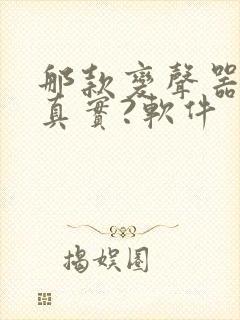 那款变聲器
真實?軟件
揭娱圈